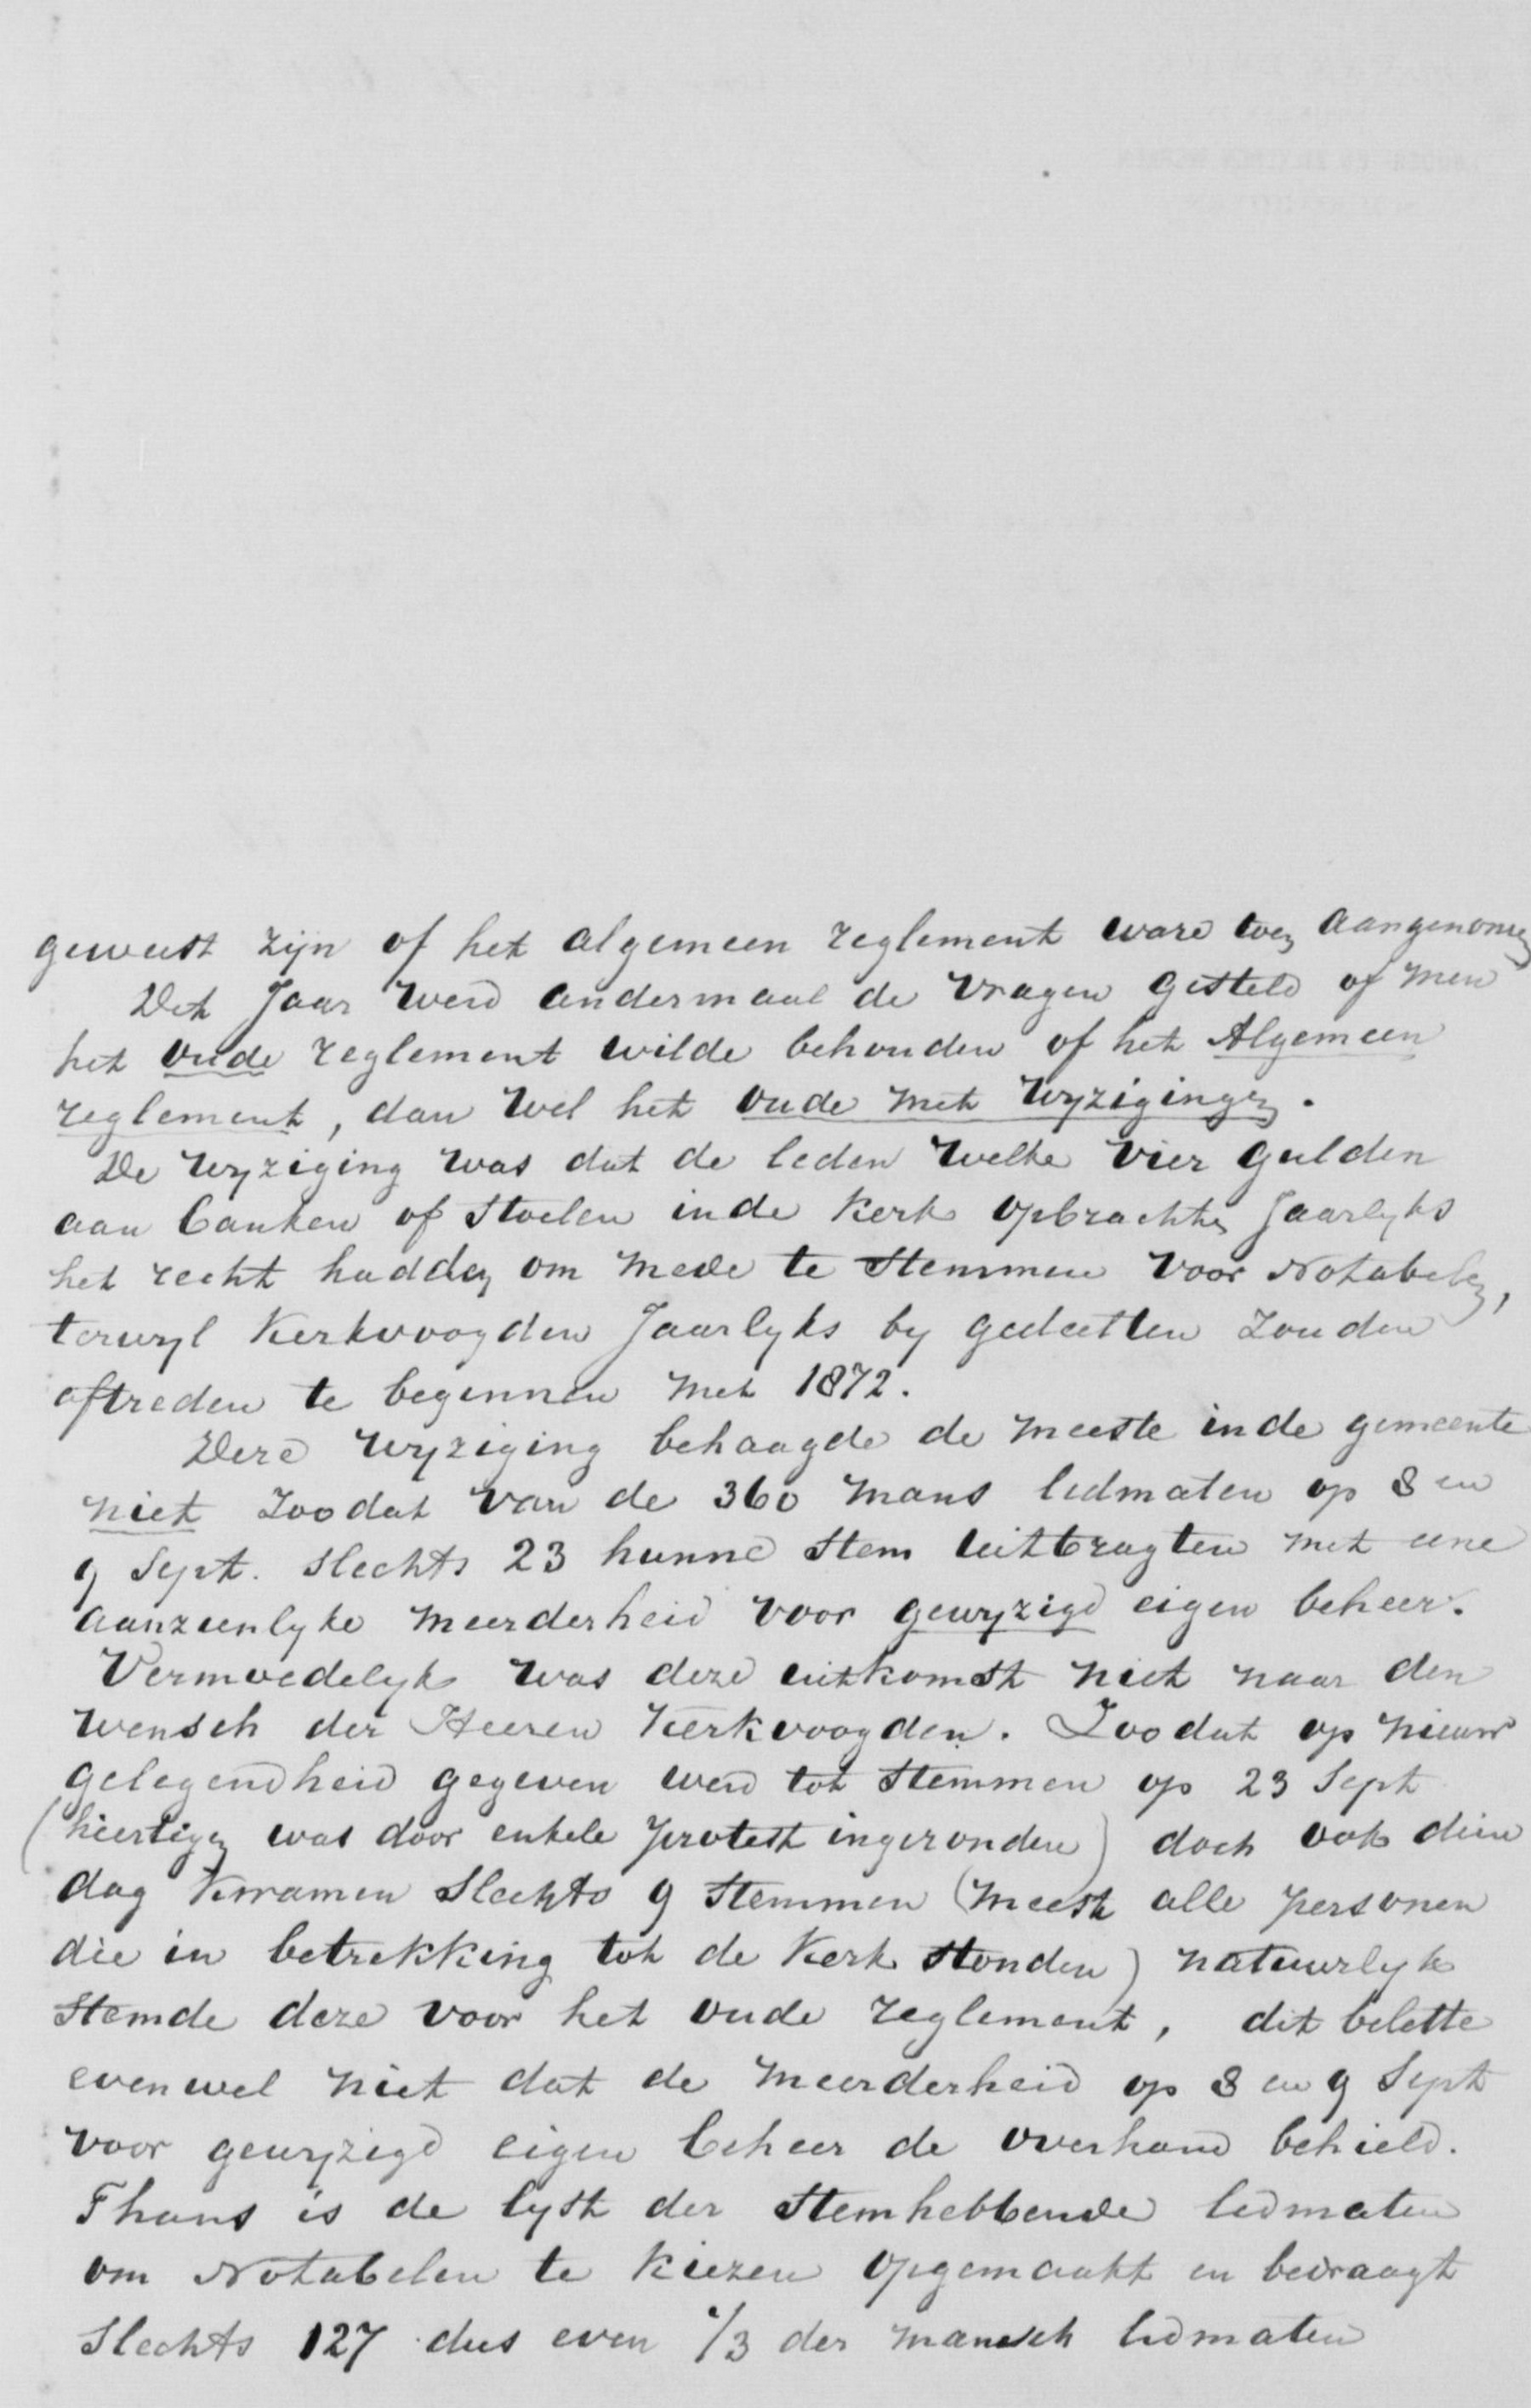 geweest zijn of het algemeen reglement ware toen aangenomen
Dit Jaar werd andermaal de vragen gesteld of men
het oude reglement wilde behouden of het Algemeen
reglement, dan wel het oude met wyzigingen.
De wyziging was dat de leden welke vier gulden
aan banken of stoelen inde kerk opbrachten Jaarlyks
het recht hadden om mede te stemmen voor Notabelen,
terwyl Kerkvoogden Jaarlyks by gedeelten zouden
aftreden te beginnen met 1872.
Deze wyziging behaagde de meeste inde gemeente
niet zoodat van de 360 mans ledmaten op 8 en
9 Sept. slechts 23 hunne stem uitbragten met eene
aanzienlyke meerderheid voor gewyzigd eigen beheer.
Vermoedelyk was deze uitkomst niet naar den
wensch der Heeren Kerkvoogden. Zoodat op nieuw
gelegendheid gegeven werd tot stemmen op 23 Sept
(hiertegen was door enkele protest ingezonden) doch ook dien
dag kwamen slechts 9 stemmen (meest alle personen
die in betrekking tot de Kerk stonden) natuurlyk
stemde deze voor het oude reglement, dit belette
evenwel niet dat de meerderheid op 8 en 9 Sept
voor gewyzigd eigen beheer de overhand behield.
Thans is de lyst der stemhebbende ledmaten
om Notabelen te kiezen opgemaakt en bedraagt
slechts 127 dus even 1/3 der mansch ledmaten